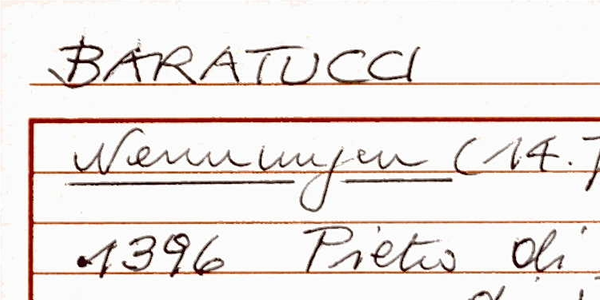 BARATUCCI
Nennungen (14.
.1396 Pietro di